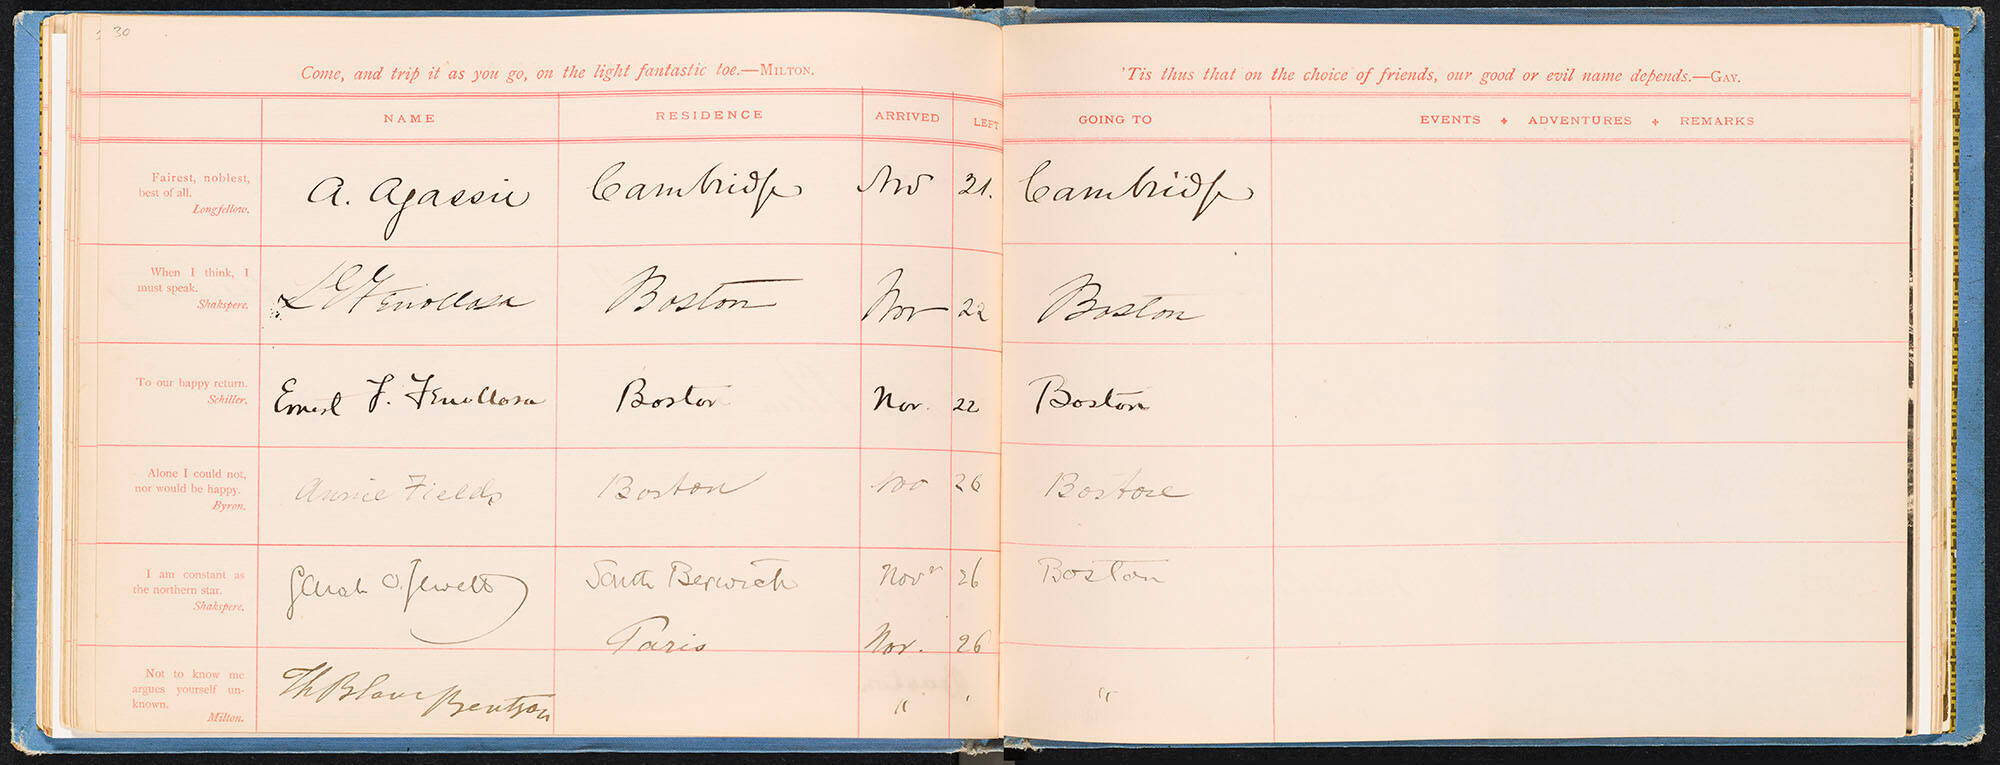 30
Come, and trip it as you go, on the light fantastic toe.—MILTON.
NAME RESIDENCE ARRIVED LEFT
Fairest, noblest,
best of all.
Longfellow.
A. Agassiz Cambridge Nov 21.
When I think, I
must speak.
Shakspere.
Fenollosa Boston Nov 22
To our happy return.
Schiller.
Ernest F. Fenollosa Boston Nov. 22
Alone I could not,
nor would be happy.
Byron.
Annie Fields Boston Nov 26
I am constant as
the northern star.
Shakspere.
Sarah O. Jewett South Berwick Nov 26
Paris Nov. 26
Not to know me
argues yourself un-
known.
Milton.
Th Blanc Bentzon "
'Tis thus that on the choice of friends, our good or evil name depends.—GAY.
GOING TO EVENTS + ADVENTURES + REMARKS
Cambridge
Boston
Boston
Boston
Boston
"